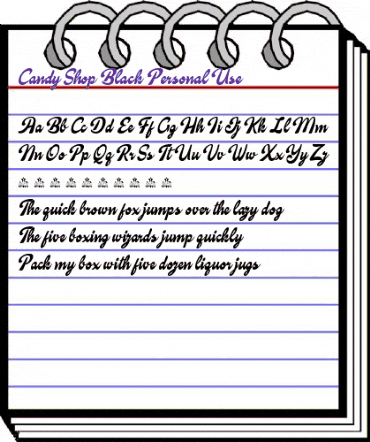 Candy Shop Black Personal Use
Aa Bb Cc Dd Ee Ff Gg Hh Ii Jj Kk Ll Mm
Nn Oo Pp Qq Rr Ss Tt Uu Vv Ww Xx Yy Zz
The quick brown fox jumps over the lazy dog
The five boxing wizards jump quickly
Pack my box with five dozen liquor jugs